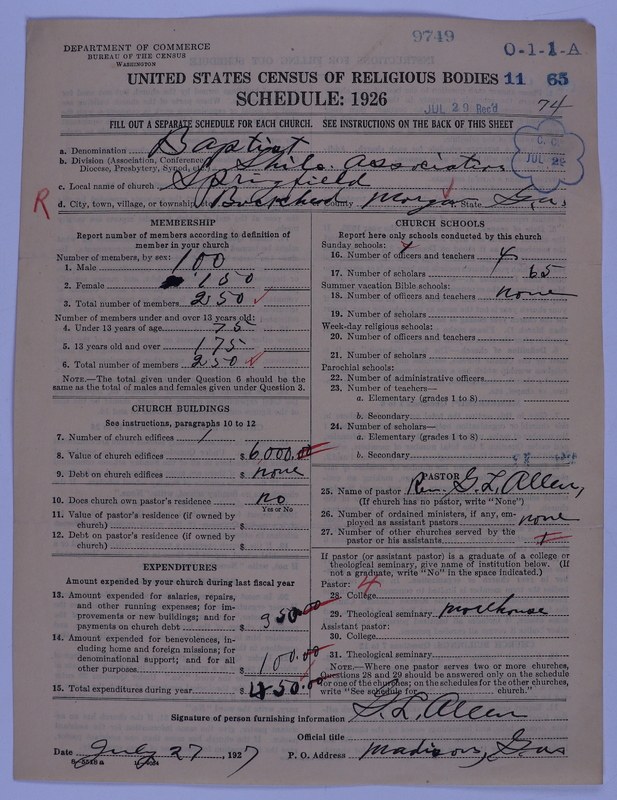 9749
O-1-1-A
DEPARTMENT OF COMMERCE
BUREAU OF THE CENSUS
WASHINGTON
UNITED STATES CENSUS OF RELIGIOUS BODIES 11 65
SCHEDULE: 1926
JUL 29 Rec'd
74
FILL OUT A SEPARATE SCHEDULE FOR EACH CHURCH. SEE INSTRUCTIONS ON THE BACK OF THIS SHEET
JUL 29
a. Denomination Baptist
b. Division (Association, Conference,
Diocese, Presbytery, Synod, etc.) Shilo. Association
c. Local name of church Springfield
R
d. City, town, village, or township County Morgan State Ga.
MEMBERSHIP
Report number of members according to definition of
member in your church
Number of members, by sex:
1. Male 100
2. Female 150
3. Total number of members 250
Number of members under and over 13 years old:
4. Under 13 years of age 75
5. 13 years old and over 175
6. Total number of members 250
NOTE.—The total given under Question 6 should be the
same as the total of males and females given under Question 3.
CHURCH BUILDINGS
See instructions, paragraphs 10 to 12
7. Number of church edifices 1
8. Value of church edifices $ 6,000.00
9. Debt on church edifices $ none
10. Does church own pastor's residence no
Yes or No
11. Value of pastor's residence (if owned by
church) $
12. Debt on pastor's residence (if owned by
church) $
EXPENDITURES
Amount expended by your church during last fiscal year
13. Amount expended for salaries, repairs,
and other running expenses; for im-
provements or new buildings; and for
payments on church debt $ 950.00
14. Amount expended for benevolences, in-
cluding home and foreign missions; for
denominational support; and for all
other purposes $ 100.00
15. Total expenditures during year $ 50.00
CHURCH SCHOOLS
Report here only schools conducted by this church
Sunday schools:
16. Number of officers and teachers 4
17. Number of scholars 65
Summer vacation Bible schools:
18. Number of officers and teachers none
19. Number of scholars
Week-day religious schools:
20. Number of officers and teachers
21. Number of scholars
Parochial schools:
22. Number of administrative officers
23. Number of teachers—
a. Elementary (grades 1 to 8)
b. Secondary
24. Number of scholars—
a. Elementary (grades 1 to 8)
b. Secondary
PASTOR
25. Name of pastor Rev. G. L. Allen,
(If church has no pastor, write "None")
26. Number of ordained ministers, if any, em-
ployed as assistant pastors none
27. Number of other churches served by the
pastor or his assistants
If pastor (or assistant pastor) is a graduate of a college or
theological seminary, give name of institution below. (If
not a graduate, write "No" in the space indicated.)
Pastor: 4
28. College
29. Theological seminary morehouse
Assistant pastor:
30. College
31. Theological seminary
NOTE.—Where one pastor serves two or more churches,
Questions 28 and 29 should be answered only on the schedule
for one of the churches; on the schedules for the other churches,
write "See schedule for church."
Signature of person furnishing information G. L. Allen
Official title
Date July 27, 1927
P. O. Address Madison, Ga